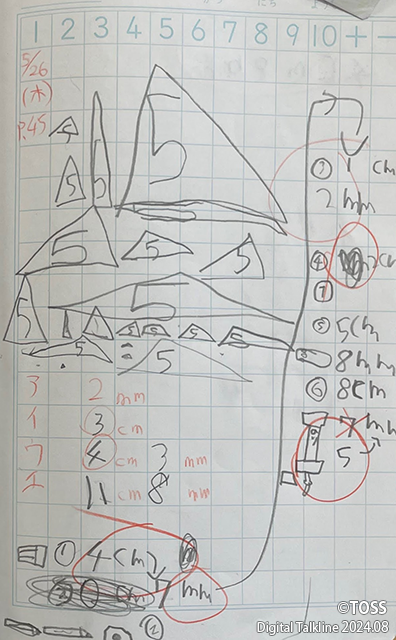 1 2 3 4 5 6 7 8 9 10 + −
5/26
(木)
P.45
5
5
5
5 5 5
5
5
5 5 5 5
5 5
ア 2 mm
イ 3 cm
ウ 4 cm 3 mm
エ 11 cm 8 mm
① 4 cm
mm
②
③ 1 cm
2 mm
④
⑤ 5cm
8mm
⑥ 8cm
7 mm
5
©TOSS
Digital Talkline 2024.08